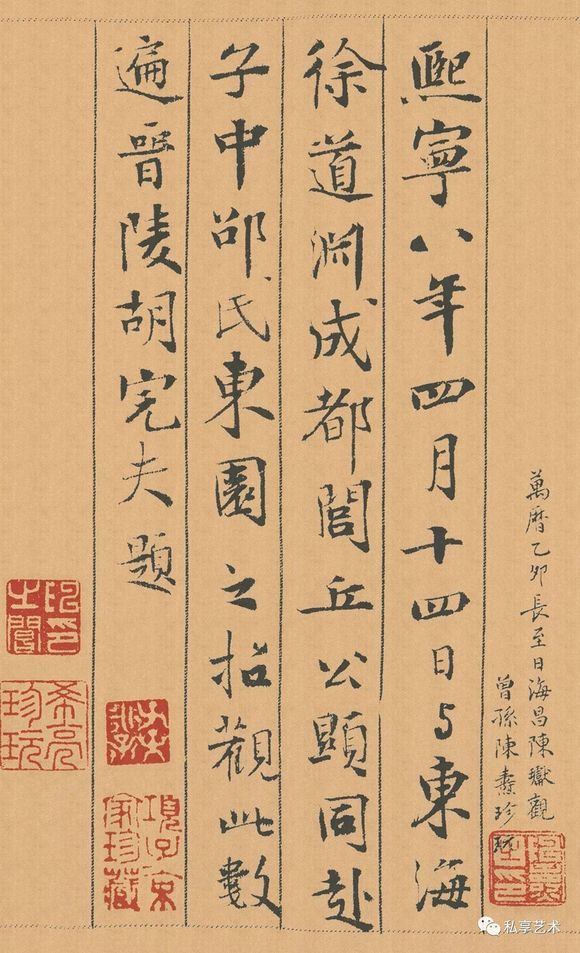 萬曆乙卯長至日海昌陳瓛觀
曾孫陳燾珍玩
熙寧八年四月十四日与東海
徐道渊成都閭丘公顯同赴
子中邵氏東園之招觀此數
遍晉陵胡完夫題
項子京
家珍藏
私享艺术